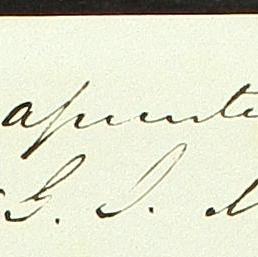 apunte
G. S.